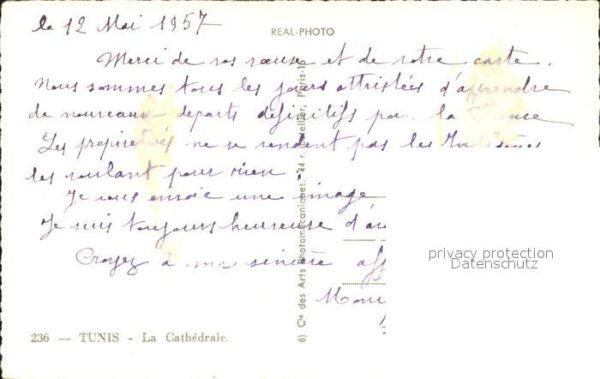 le 12 Mai 1957
REAL-PHOTO
Merci de vos vœux et de votre carte.
Nous sommes tous les jours attristées d'apprendre
de nouveaux départs définitifs pour la France
Les propriétés ne se vendent pas les
les voulant pour rien.
Je vous envoie une image
Je suis toujours heureuse d'a
Croyez à ma sincère aff
236 — TUNIS - La Cathédrale.
6) Cie des Arts Photomécaniques, 44 r. Letellier, Paris-15
privacy protection
Datenschutz